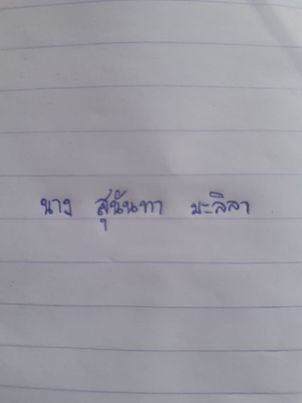 นาง สุนันทา มะลิลา